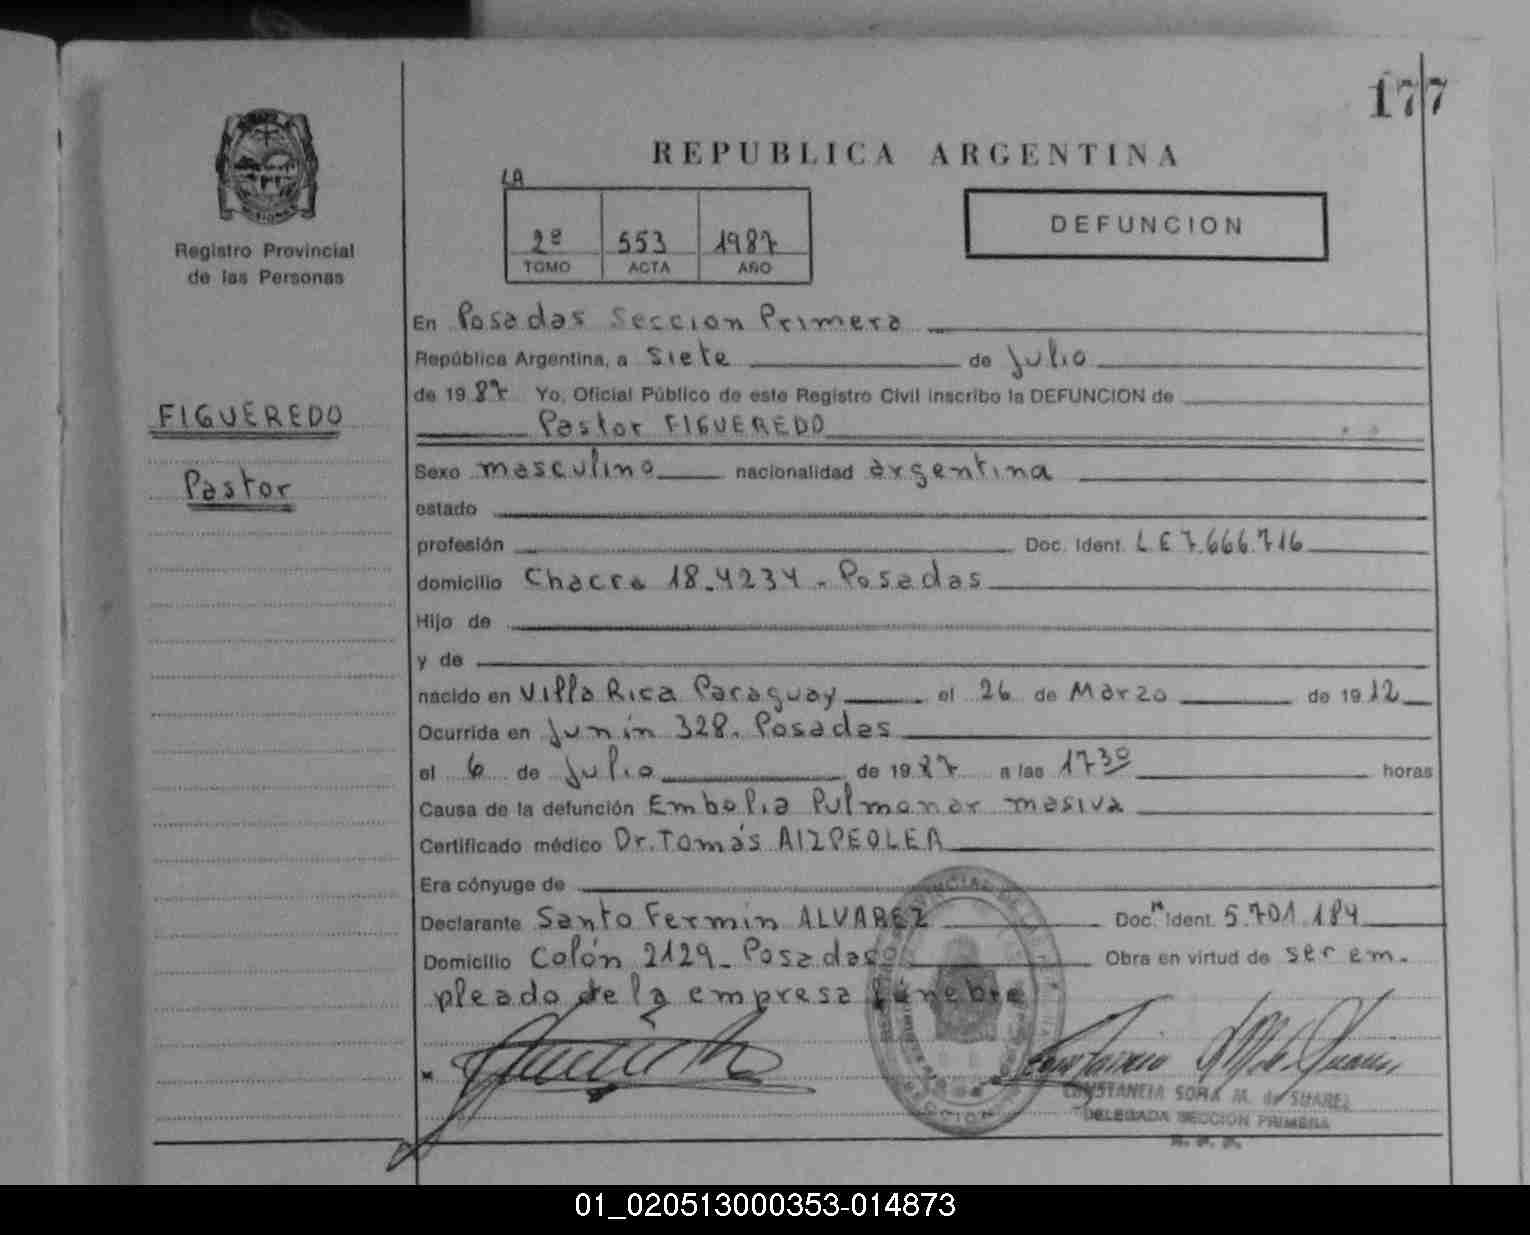 177
REPUBLICA ARGENTINA
LA
2º 553 1987
TOMO ACTA AÑO
DEFUNCION
MISIONES
Registro Provincial
de las Personas
FIGUEREDO
Pastor
En Posadas Seccion Primera
República Argentina, a Siete de Julio
de 1987 Yo, Oficial Público de este Registro Civil inscribo la DEFUNCION de
Pastor FIGUEREDO
Sexo masculino nacionalidad argentina
estado
profesión Doc. Ident. L E 7.666.716
domicilio Chacra 18-4234 - Posadas
Hijo de
y de
nacido en Villa Rica Paraguay el 26 de Marzo de 1912
Ocurrida en Junin 328. Posadas
el 6 de Julio de 1987 a las 17 30 horas
Causa de la defunción Embolia Pulmonar masiva
Certificado médico Dr. Tomás AIZPEOLEA
Era cónyuge de
Declarante Santo Fermin ALVAREZ Doc. Ident. M 5.701.184
Domicilio Colón 2129 - Posadas Obra en virtud de ser em-
pleado de la empresa fúnebre
CONSTANCIA SOFIA M. de SUAREZ
DELEGADA SECCION PRIMERA
R. P. P.
01_020513000353-014873